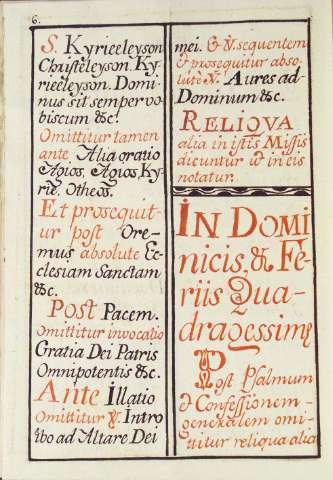 6.
S. Kyrieeleyson
Christeleyson. Ky-
rieeleyson. Domi-
nus sit semper vo-
biscum &c.
Omittitur tamen
ante Alia oratio
Agios, Agios, Ky-
rie, Otheos.
Et prosequit-
ur post Ore-
mus absolute Ec-
clesiam Sanctam
&c.
Post Pacem.
omittitur invocatio
Gratia Dei Patris
Omnipotentis &c.
Ante Illatio
Omittitur ℣. Intro
ibo ad Altare Dei
mei. & ℣. sequentem
& prosequitur abso-
lute ℣. Aures ad
Dominum &c.
RELIQVA
alia in istis Missis
dicuntur ut in eis
notatur.
IN DOMI
nicis, & Fe-
riis Qua-
dragessime
Post Psalmum
& Confessionem
generalem omi-
ttitur reliqua alia